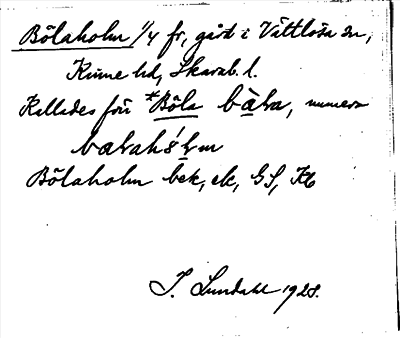 Bölaholm 1/4 fr, gård i Vättlösa sn,
Kinne hd, Skarab. l.
Kallades förr *Böla bä̀ɩa, numera
Bölaholm bek, etc, GS, Kb
I. Lundahl 1928.